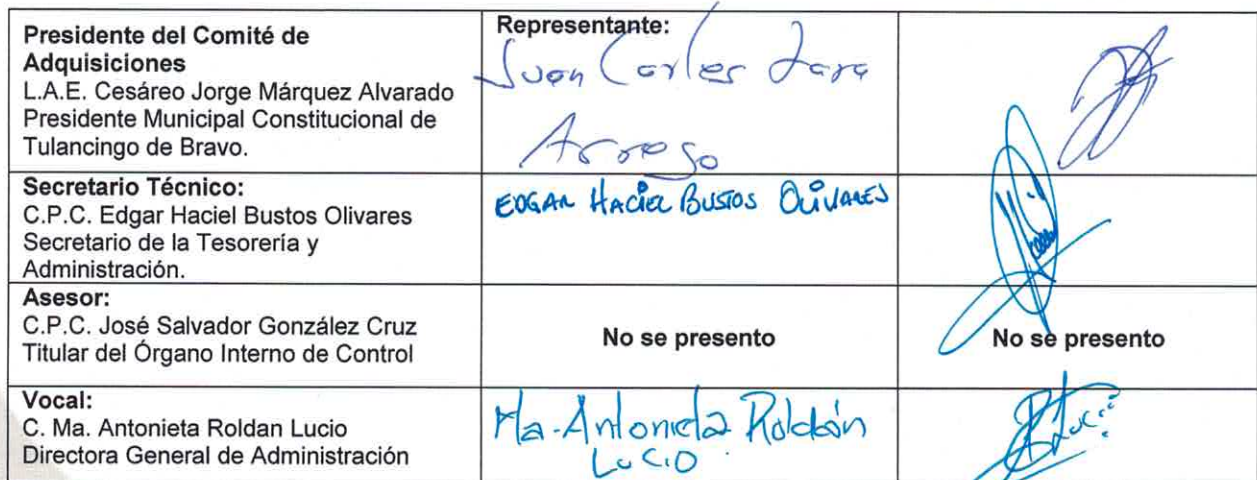 Presidente del Comité de
Adquisiciones
L.A.E. Cesáreo Jorge Márquez Alvarado
Presidente Municipal Constitucional de
Tulancingo de Bravo.
Representante:
Juan Carlos Lara
Arrego
Secretario Técnico:
C.P.C. Edgar Haciel Bustos Olivares
Secretario de la Tesorería y
Administración.
EDGAR HACIEL BUSTOS OLIVARES
Asesor:
C.P.C. José Salvador González Cruz
Titular del Órgano Interno de Control
No se presento
No se presento
Vocal:
C. Ma. Antonieta Roldan Lucio
Directora General de Administración
Ma. Antonieta Roldán
LUCIO